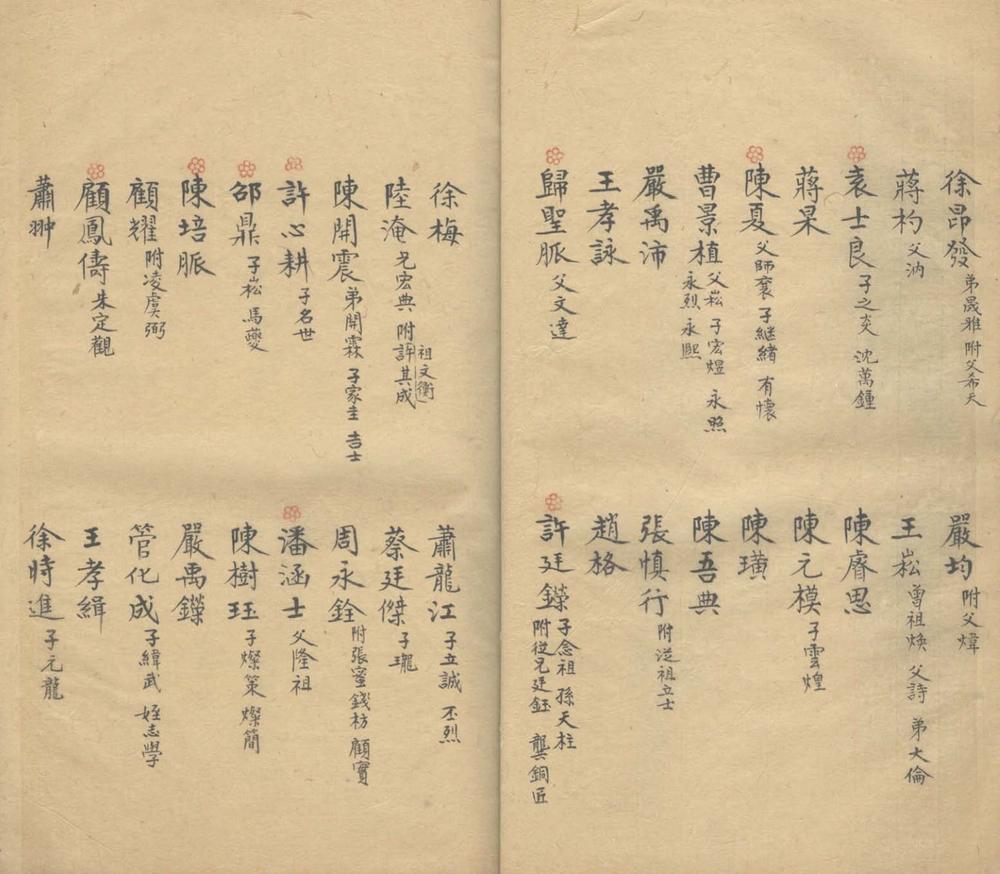 徐昂發 弟晟雅 附父希天
嚴均 附父煒
蔣杓 父汭
王崧 曾祖煥 父詩 弟大倫
袁士良 子之炎 沈萬鍾
陳睿思
蔣杲
陳元模 子雲煌
陳夏 父師襃 子繼緒 有懷
陳璜
曹景植 父崧 子宏煜 永照 永烈 永熙
陳吾典
嚴禹沛
張慎行 附從祖立士
王孝詠
趙格
歸聖脈 父文達
許廷鑅 子念祖 孫天柱 附從兄廷鈺 龔銅匠
徐梅
蕭龍江 子立誠 丕烈
陸淹 兄宏典 附許其成 祖文衡
蔡廷傑 子瓏
陳開震 弟開霖 子家圭 吉士
周永銓 附張蜜 錢枋 顧實
許心耕 子名世
潘涵士 父隆祖
邵鼎 子崧 馬夔
陳樹珏 子燦策 燦簡
陳培脈
嚴禹鑅
顧耀 附凌虞弼
管化成 子緯武 姪志學
顧鳳儔 朱定觀
王孝緝
蕭翀
徐時進 子元龍